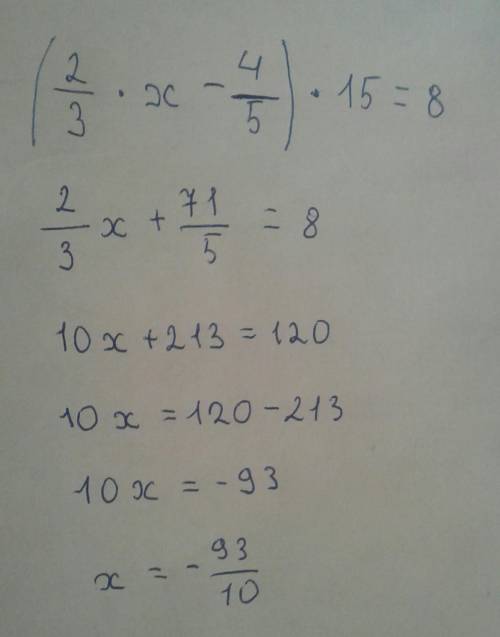 (2/3 · x - 4/5) · 15 = 8
2/3 x + 71/5 = 8
10x + 213 = 120
10x = 120 - 213
10x = -93
x = - 93/10